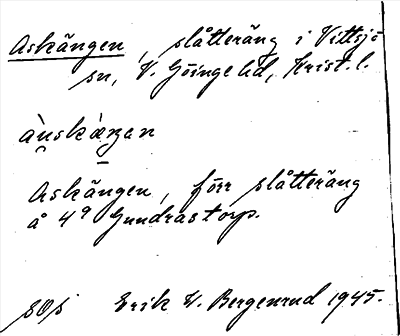 Askängen, slåtteräng i Vittsjö
sn, V. Göinge hd, Krist. l.
Askängen, förr slåtteräng
å 4⁹ Gundrastorp.
Erik W. Bergenrud 1945.